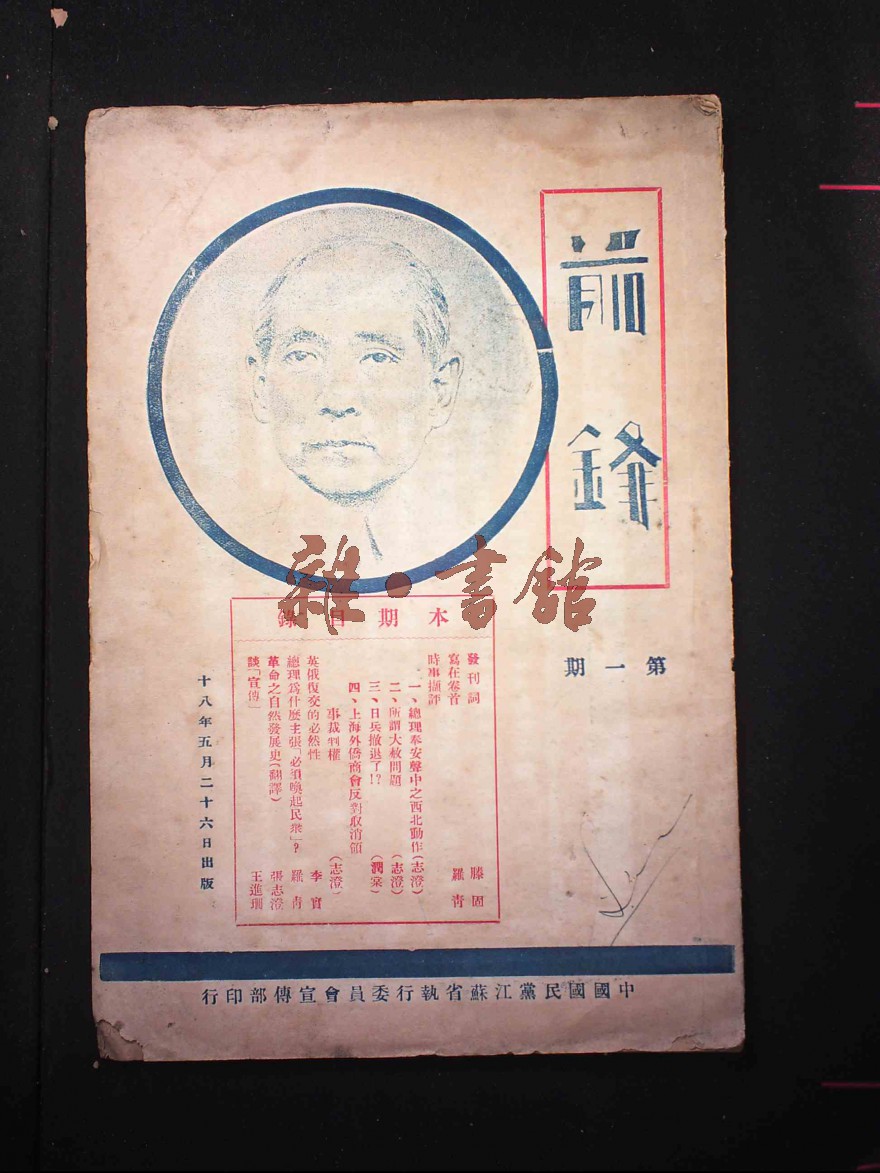 前鋒
第一期
本期目錄
發刊詞 滕固
寫在卷首 羅青
時事擷評
一、總理奉安聲中之西北動作(志澄)
二、所謂大赦問題(志澄)
三、日兵撤退了!?(潤棠)
四、上海外僑商會反對取消領
事裁判權(志澄)
英俄復交的必然性 李寶
總理爲什麼主張「必須喚起民衆」? 羅青
革命之自然發展史(翻譯) 張志澄
談「宣傳」 王進珊
十八年五月二十六日出版
中國國民黨江蘇省執行委員會宣傳部印行
雜·書館